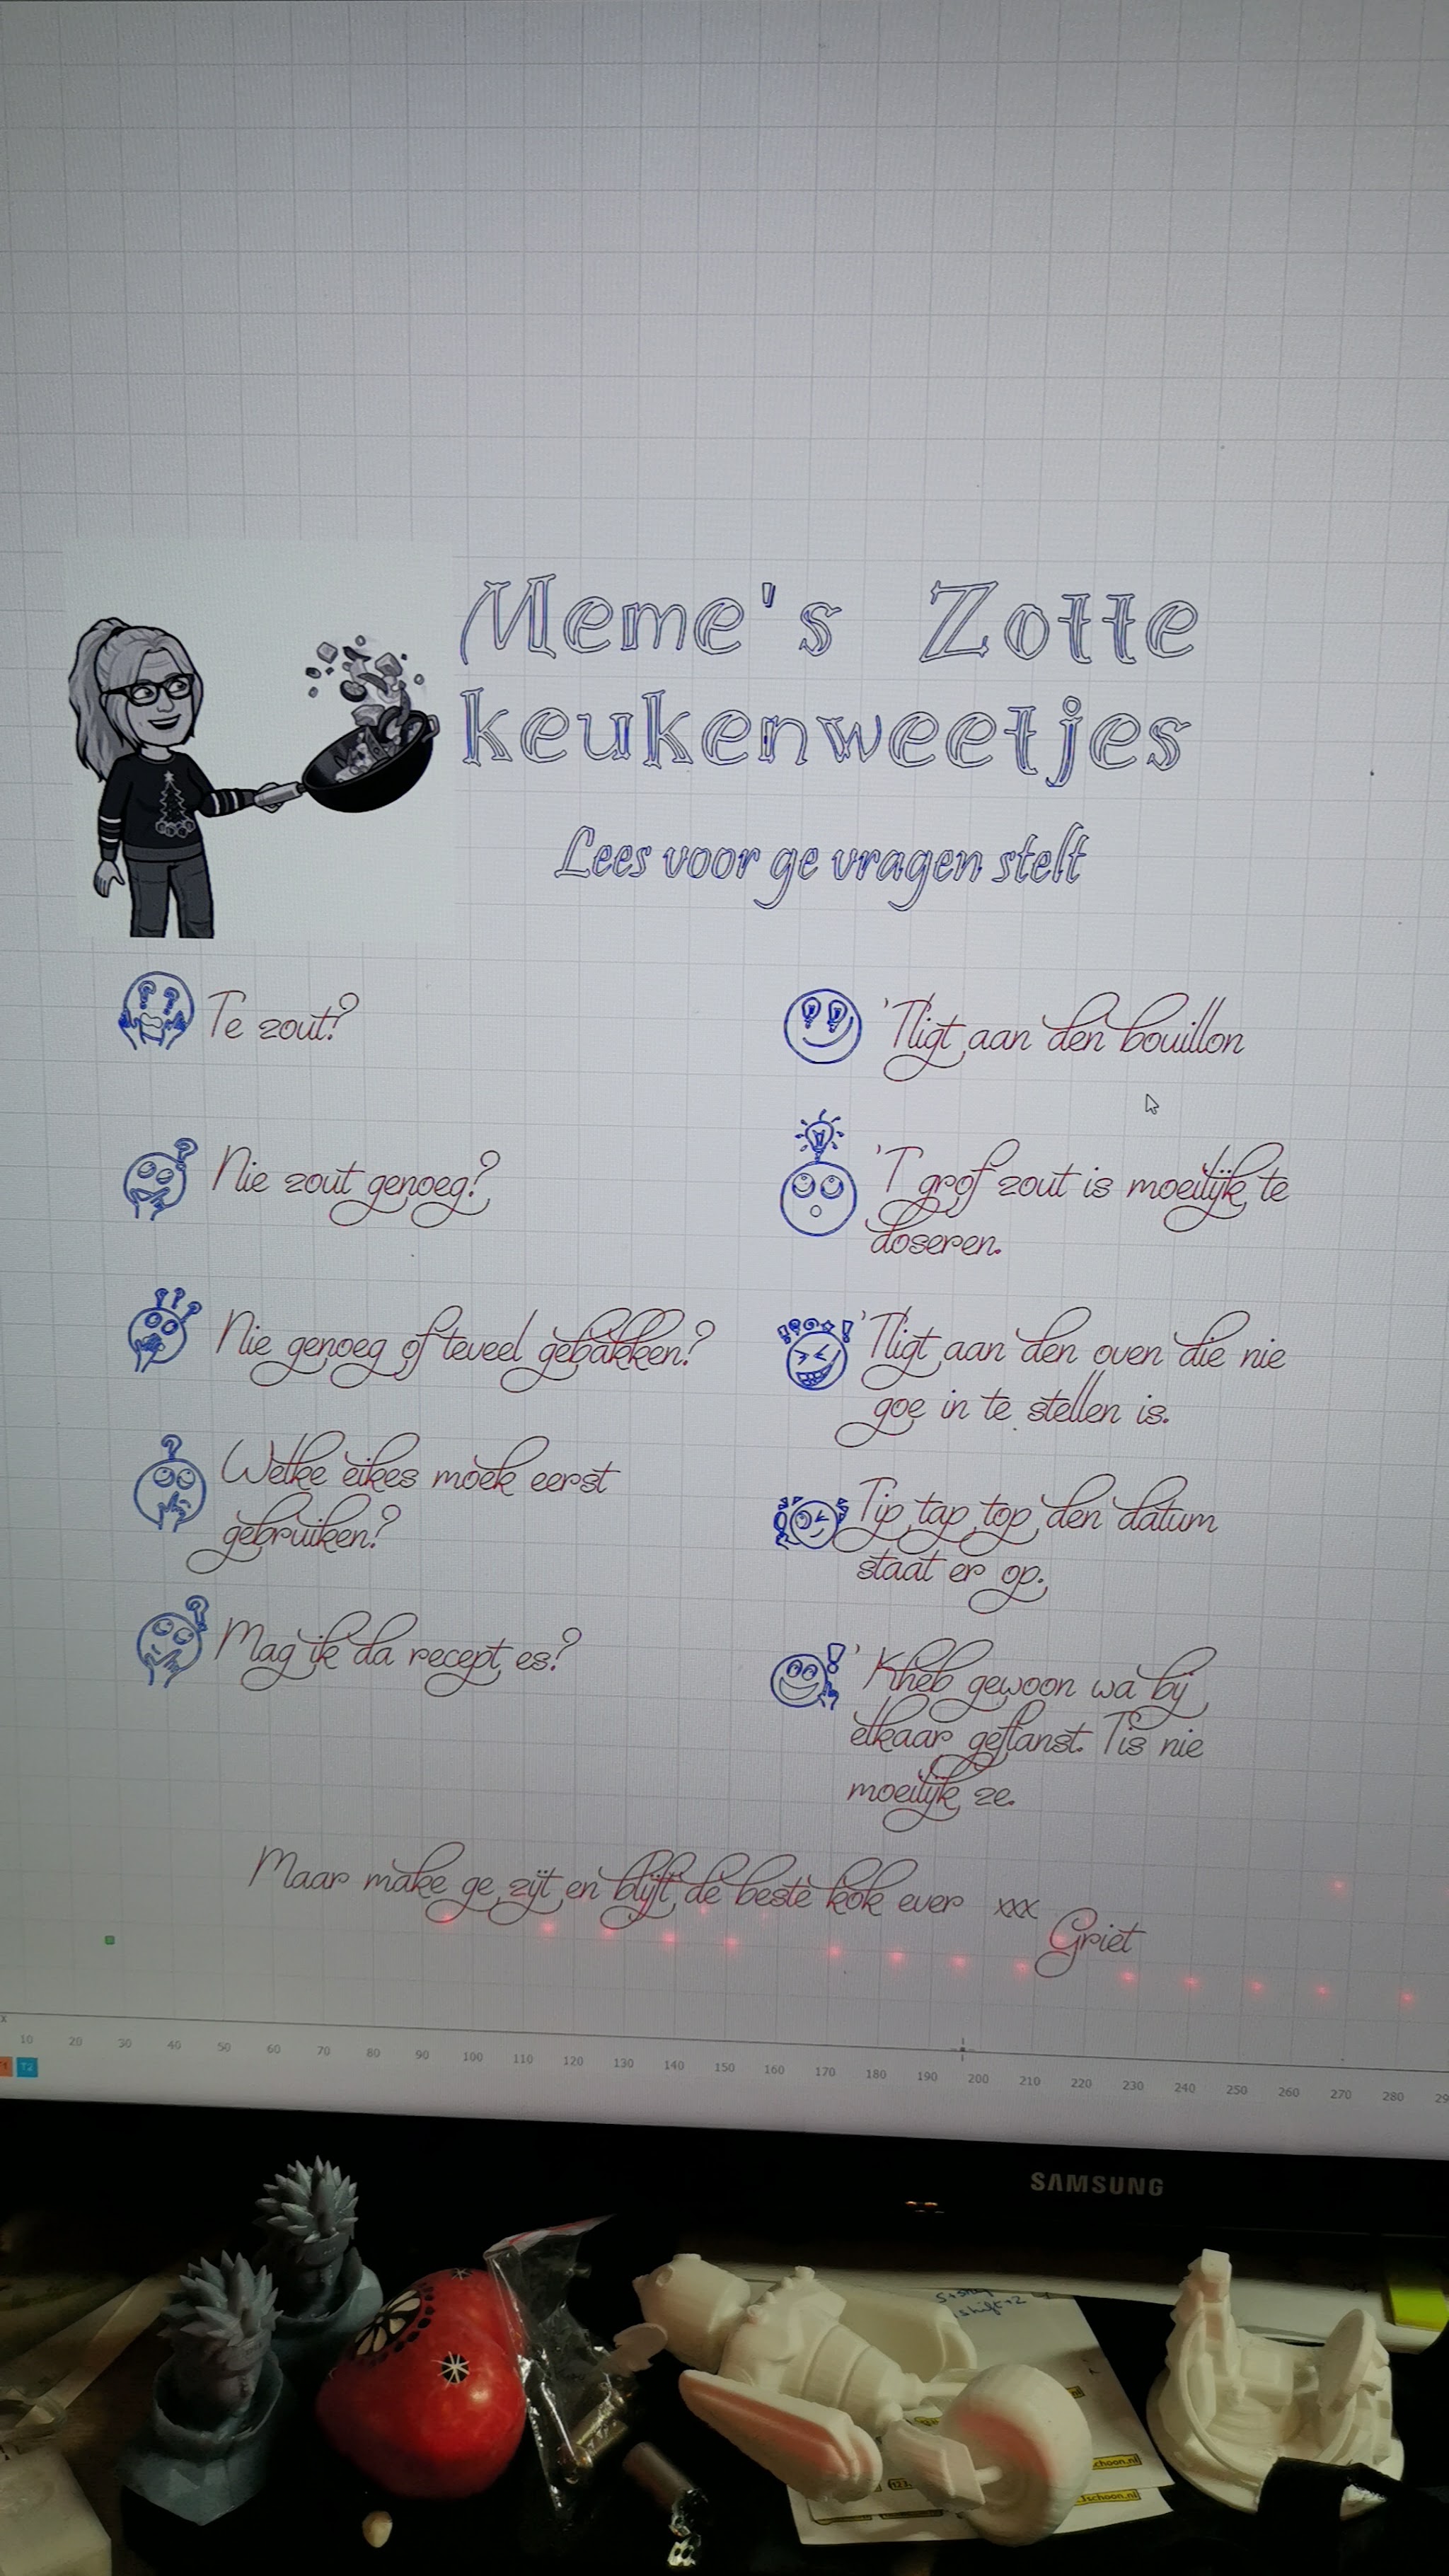 Meme's Zotte
keukenweetjes
Lees voor ge vragen stelt
Te zout?
'Tligt aan den bouillon
Nie zout genoeg?
'T grof zout is moeilijk te
doseren.
Nie genoeg of teveel gebakken?
'Tligt aan den oven die nie
goe in te stellen is.
Welke eikes moek eerst
gebruiken?
Tip tap top den datum
staat er op.
Mag ik da recept es?
'Kheb gewoon wa bij
elkaar geflanst. Tis nie
moeilijk ze.
Maar make ge zijt en blijft de beste kok ever xxx
Griet
x
10 20 30 40 50 60 70 80 90 100 110 120 130 140 150 160 170 180 190 200 210 220 230 240 250 260 270 280 29
T1 T2
SAMSUNG
shift+2
schoon.nl
schoon.nl